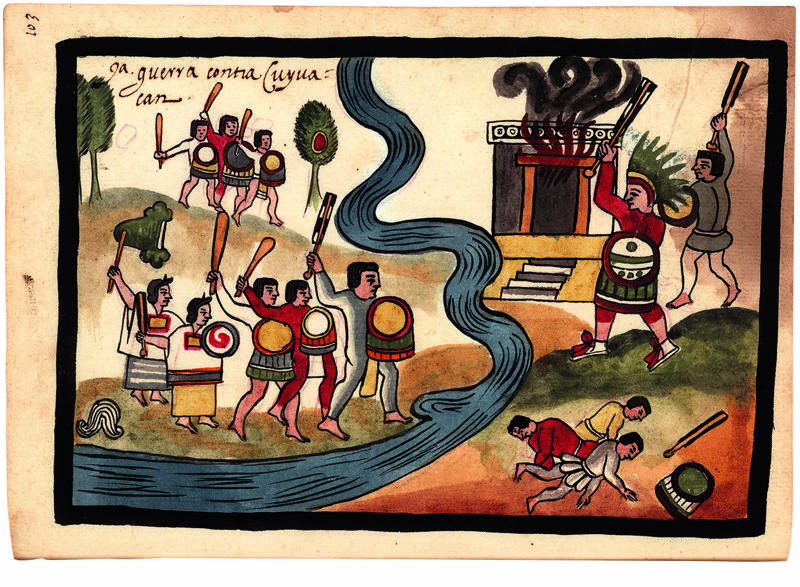 103
9a. guerra contra Cuyua=
can.